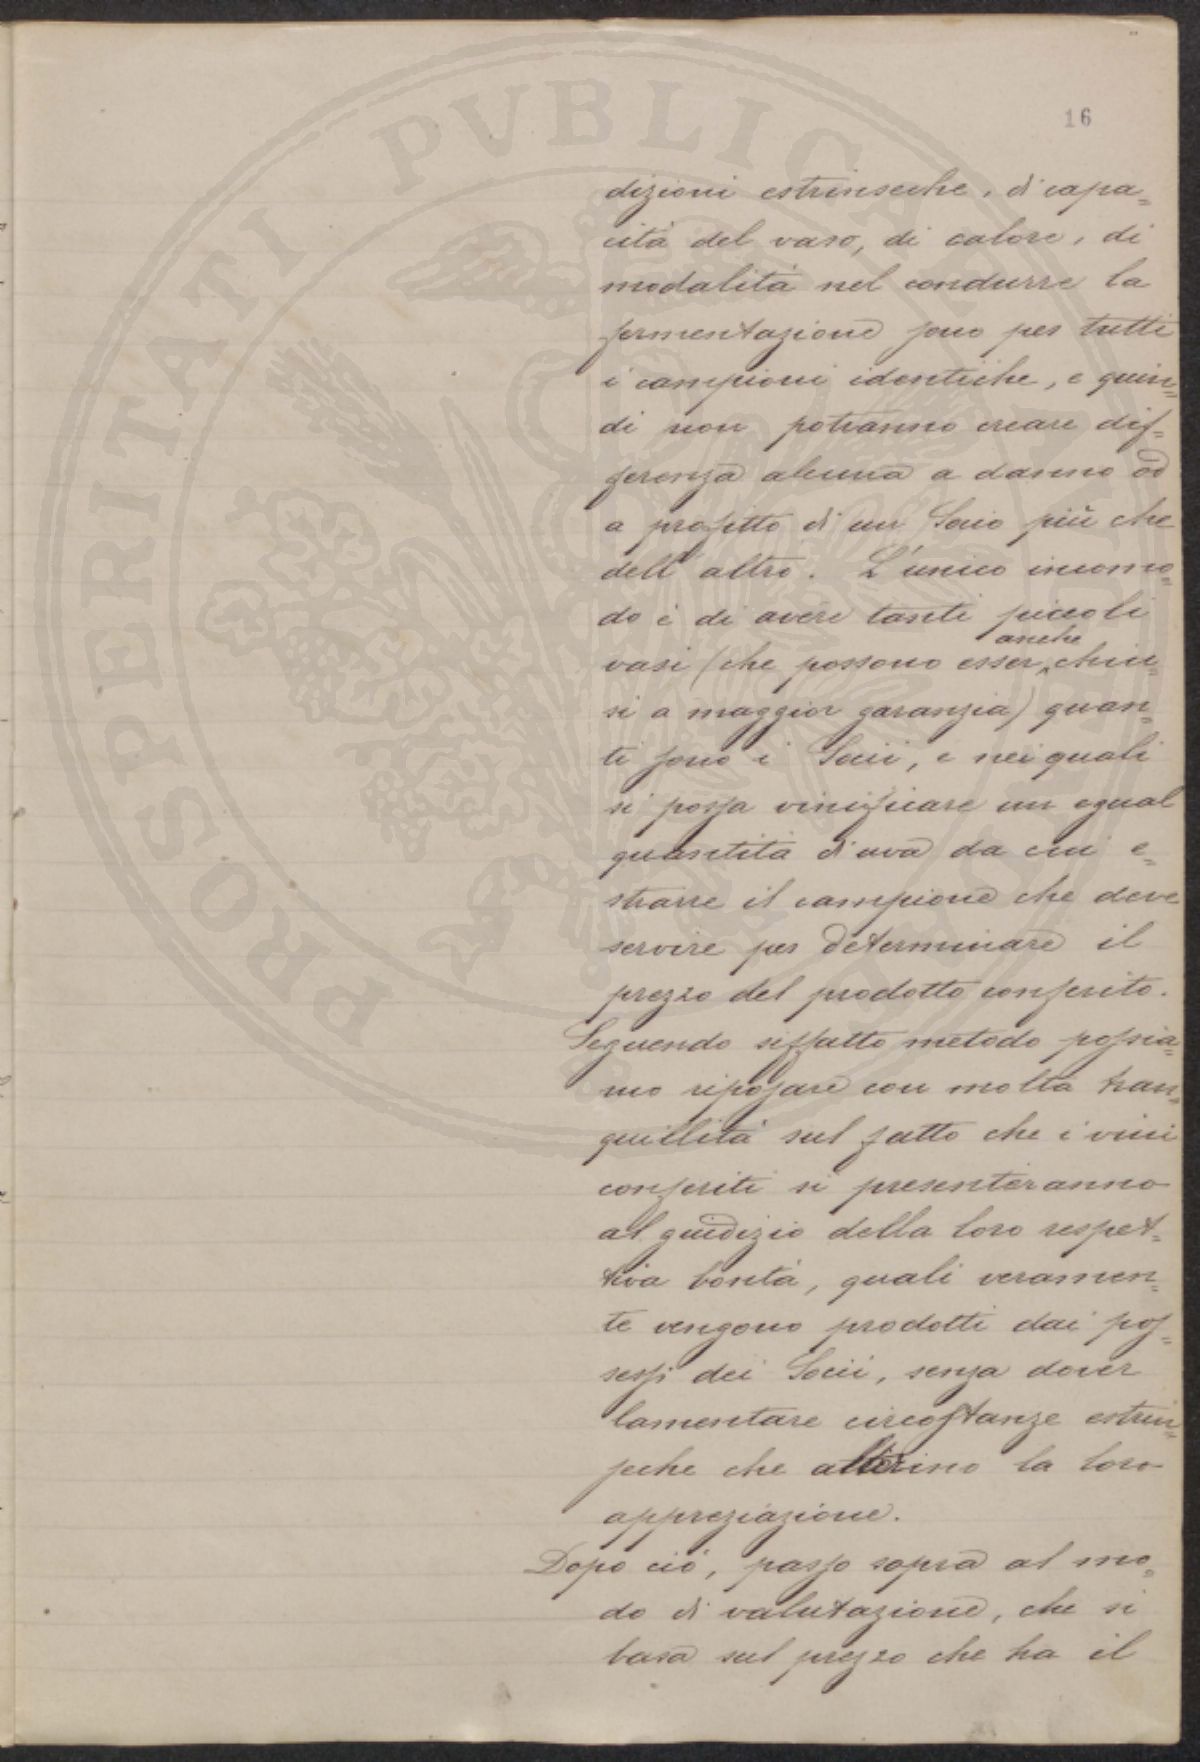 16
dizioni estrinseche, di capa=
cità del vaso, di calore, di
modalità nel condurre la
fermentazione sono per tutti
i campioni identiche, e quin=
di non potranno creare dif=
ferenza alcuna a danno od
a profitto di un Socio più che
dell'altro. L'unico incomo=
do è di avere tanti piccoli
vasi (che possono esser anche chiu=
si a maggior garanzia) quan=
ti sono i Socii, e nei quali
si possa vinificare un egual
quantità d'uva da cui e=
strarre il campione che deve
servire per determinare il
prezzo del prodotto conferito.
Seguendo siffatto metodo possia=
mo riposare con molta tran=
quillità sul fatto che i vini
conferiti si presenteranno
al giudizio della loro respet=
tiva bontà, quali veramen=
te vengono prodotti dai pos=
sessi dei Socii, senza dover
lamentare circostanze estrin=
seche che alterino la loro
appreziazione.
Dopo ciò, passo sopra al mo=
do di valutazione, che si
basa sul prezzo che ha il
PROSPERITATI PVBLICAE